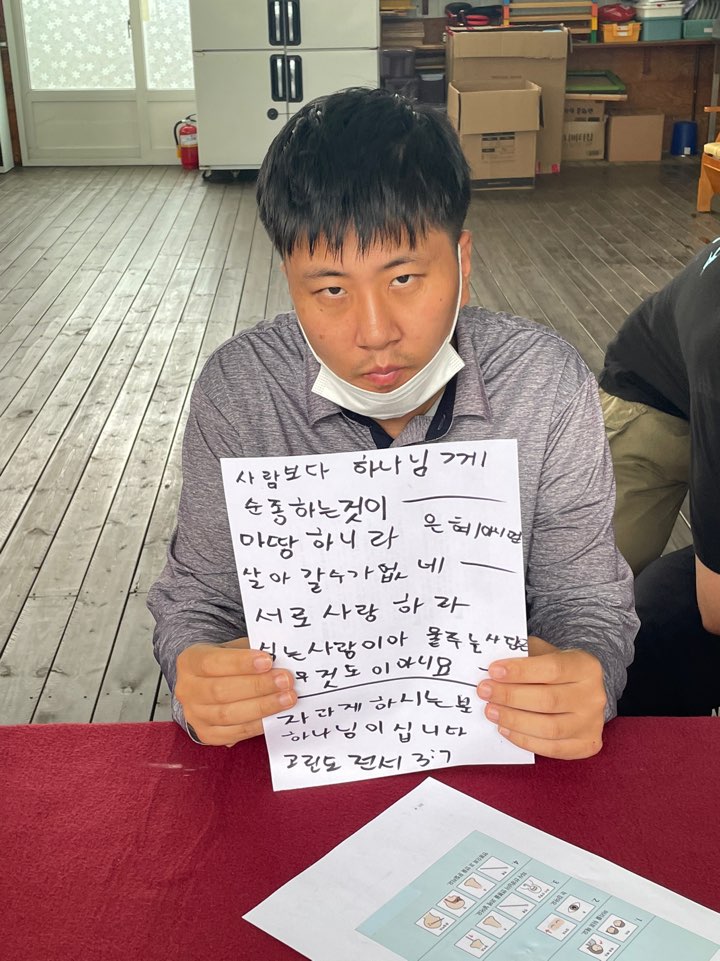 사람보다 하나님 게
순종하는것이
마땅하니라 은혜아니면
살아갈수가없네
서로사랑하라
심는사람이아 물주는사람은
무것도이아니요
자라게하시는분
하나님이십니다
고린도전서 3:7
4
3
2
1